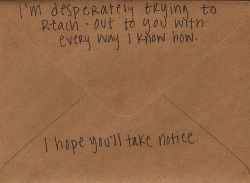 I'm desperately trying to
reach - out to you with
every way I know how.
I hope you'll take notice.